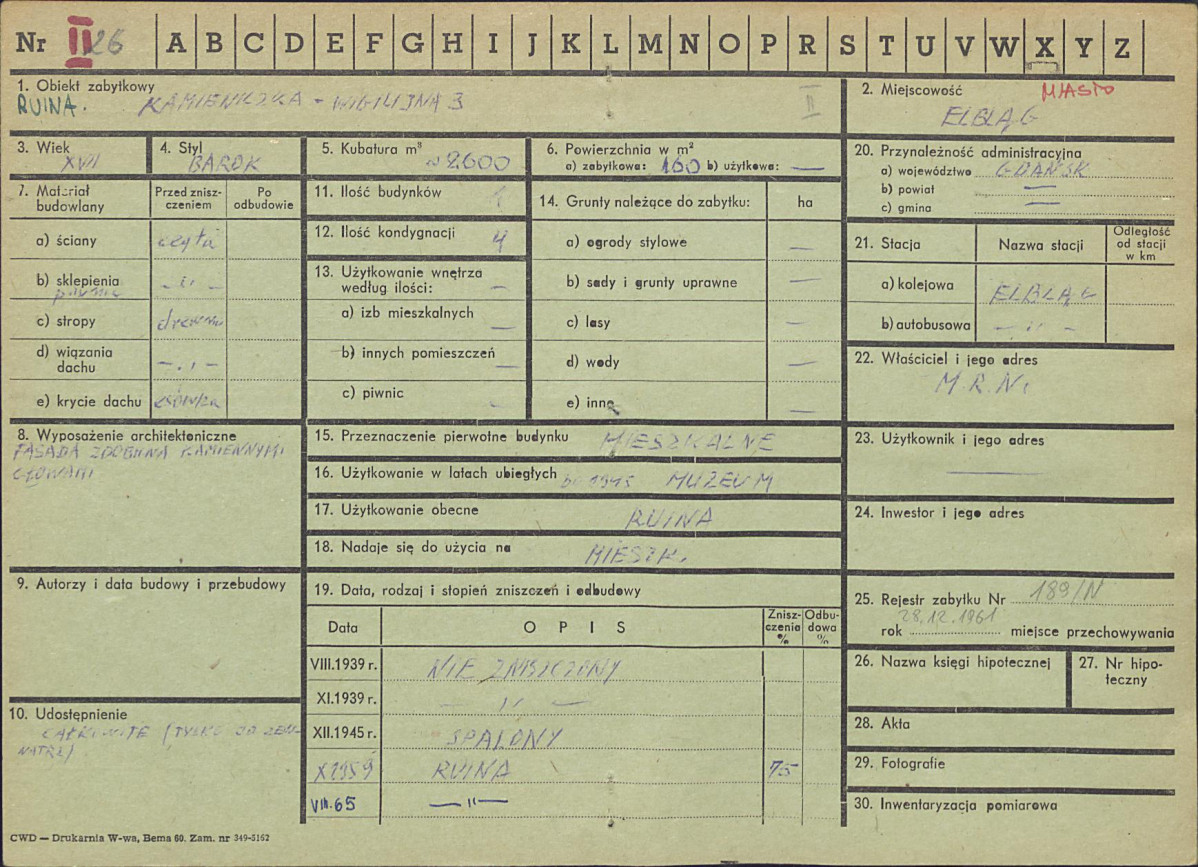 Nr II 26 A B C D E F G H I J K L M N O P R S T U V W X Y Z
1. Obiekt zabytkowy
RUINA. KAMIENICZKA - WIGILIJNA 3 II
2. Miejscowość MIASTO
ELBLĄG
3. Wiek
XVII
4. Styl
BAROK
5. Kubatura m³
~ 2600
6. Powierzchnia w m²
a) zabytkowa: 160 b) użytkowa: —
20. Przynależność administracyjna
a) województwo GDAŃSK
b) powiat —
c) gmina —
7. Materiał budowlany
Przed zniszczeniem
Po odbudowie
a) ściany cegła
b) sklepienia - „ -
piwnic
c) stropy drewno
d) wiązania dachu - „ -
e) krycie dachu
11. Ilość budynków 1
12. Ilość kondygnacji 4
13. Użytkowanie wnętrza według ilości: —
a) izb mieszkalnych —
b) innych pomieszczeń —
c) piwnic -
14. Grunty należące do zabytku: ha
a) ogrody stylowe —
b) sady i grunty uprawne —
c) lasy —
d) wody —
e) inne —
21. Stacja Nazwa stacji Odległość od stacji w km
a) kolejowa ELBLĄG
b) autobusowa - „ -
22. Właściciel i jego adres
M.R.N.
8. Wyposażenie architektoniczne
FASADA ZDOBIONA KAMIENNYMI
GŁOWAMI
15. Przeznaczenie pierwotne budynku MIESZKALNE
16. Użytkowanie w latach ubiegłych 1945 MUZEUM
17. Użytkowanie obecne RUINA
18. Nadaje się do użycia na MIESZK.
23. Użytkownik i jego adres
—
24. Inwestor i jego adres
9. Autorzy i data budowy i przebudowy
19. Data, rodzaj i stopień zniszczeń i odbudowy
Data OPIS Zniszczenia % Odbudowa %
VIII.1939 r. NIE ZNISZCZONY
XI.1939 r. — „ —
XII.1945 r. SPALONY
X 1959 RUINA 75
VIII.65 — „ —
25. Rejestr zabytku Nr 189/N
28.12.1961
rok miejsce przechowywania
26. Nazwa księgi hipotecznej
27. Nr hipoteczny
10. Udostępnienie
CAŁKOWITE (TYLKO OD ZEWNĄTRZ)
28. Akta
29. Fotografie
30. Inwentaryzacja pomiarowa
CWD — Drukarnia W-wa, Bema 60. Zam. nr 349-5162